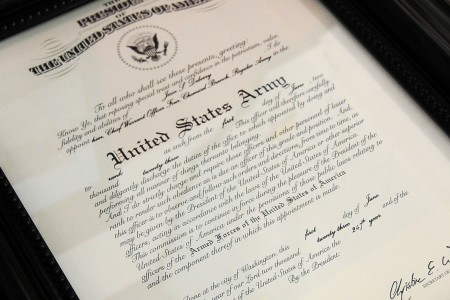 THE
PRESIDENT
OF
THE UNITED STATES OF AMERICA
To all who shall see these presents, greeting:
Know Ye, that reposing special trust and confidence in the patriotism, valor,
fidelity and abilities of I do
appoint Chief Warrant Officer Four, Chemical Branch, Regular Army in the
United States Army
as such from the first day of June two
thousand and twenty three This officer will therefore carefully
and diligently discharge the duties of the office to which appointed by doing and
performing all manner of things thereunto belonging.
And I do strictly charge and require those officers and other personnel of lesser
rank to render such obedience as is due an officer of this grade and position. And
this officer is to observe and follow such orders and directions, from time to time, as
may be given by the President of the United States of America or other superior
officers, acting in accordance with the laws of the United States of America.
This commission is to continue in force during the pleasure of the President of the
United States of America under the provisions of those public laws relating to
officers of the Armed Forces of the United States of America
and the component thereof in which this appointment is made.
Done at the city of Washington, this first day of June
in the year of our Lord two thousand twenty three and of the
of the United States of America the 247th year
By the President:
Christine E. W